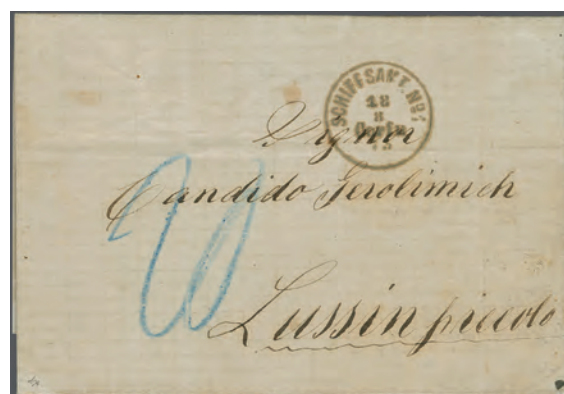 SCHIFFSAMT. Nº1
18
8
Corfu
75
Signor
Candido Gerolimich
20
Lussin piccolo